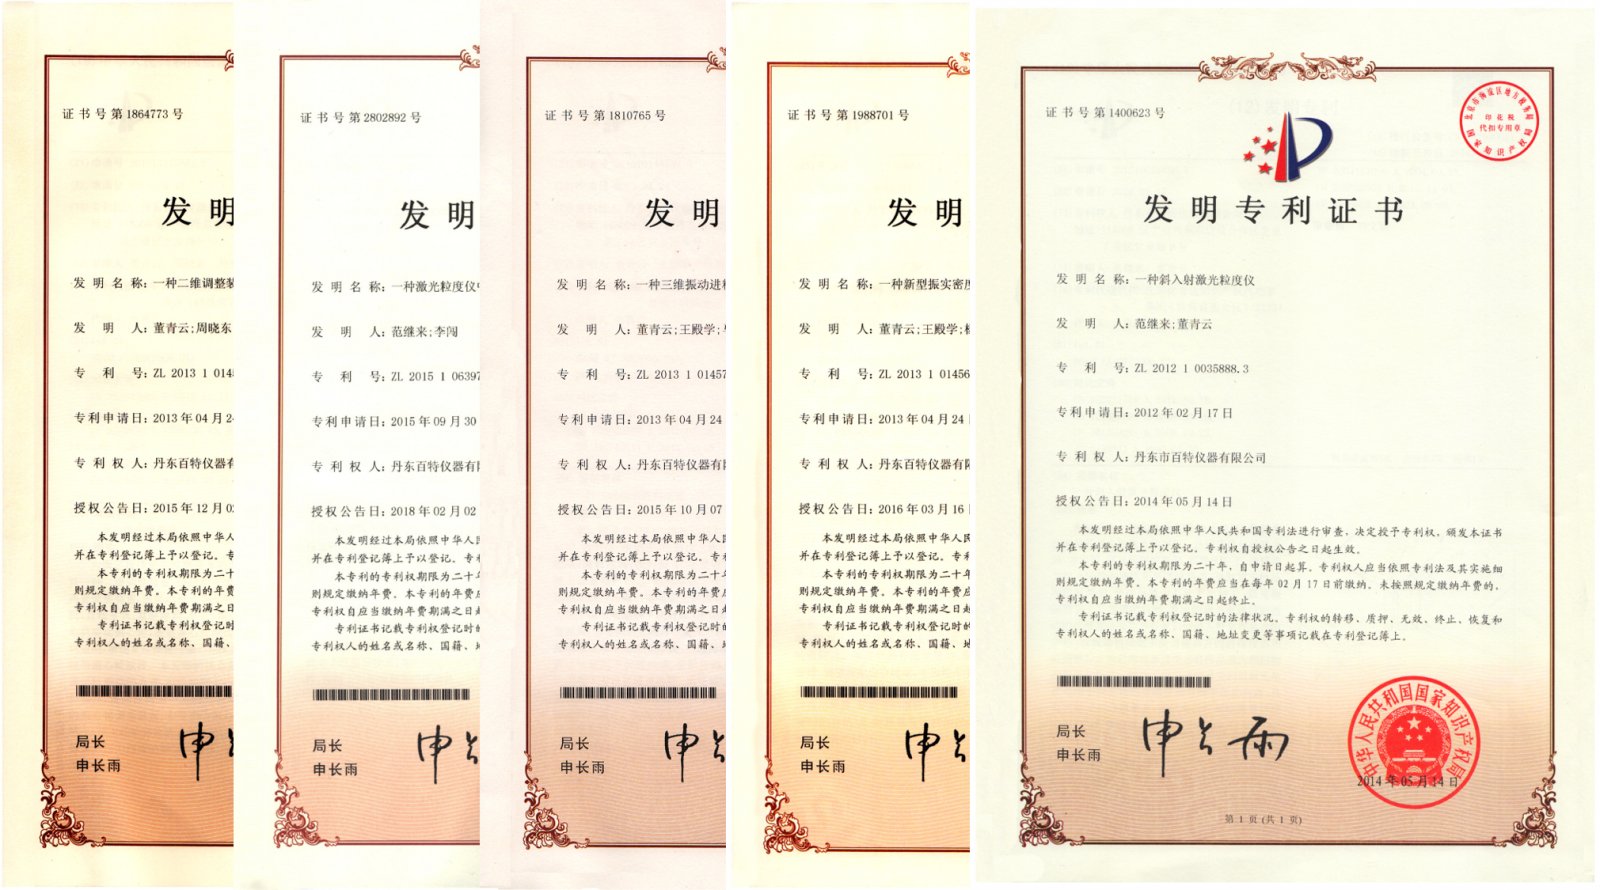 证书号第1864773号
发明
发明名称：一种二维调整装
发明人：董青云;周晓东
专利号：ZL 2013 1 0145
专利申请日：2013年04月24
专利权人：丹东百特仪器有
授权公告日：2015年12月02
本发明经过本局依照中华人
并在专利登记簿上予以登记。专
本专利的专利权期限为二十
则规定缴纳年费。本专利的年费
专利权自应当缴纳年费期满之日
专利证书记载专利权登记时
专利权人的姓名或名称、国籍、
局长
申长雨
证书号第2802892号
发明
发明名称：一种激光粒度仪中
发明人：范继来;李闯
专利号：ZL 2015 1 06397
专利申请日：2015年09月30
专利权人：丹东百特仪器有
授权公告日：2018年02月02
本发明经过本局依照中华人民
并在专利登记簿上予以登记。专利
本专利的专利权期限为二十年
则规定缴纳年费。本专利的年费
专利权自应当缴纳年费期满之日起
专利证书记载专利权登记时的
专利权人的姓名或名称、国籍、地
局长
申长雨
证书号第1810765号
发明
发明名称：一种三维振动进样
发明人：董青云;王殿学;
专利号：ZL 2013 1 01457
专利申请日：2013年04月24
专利权人：丹东百特仪器有
授权公告日：2015年10月07
本发明经过本局依照中华人民
并在专利登记簿上予以登记。专利
本专利的专利权期限为二十年
则规定缴纳年费。本专利的年费
专利权自应当缴纳年费期满之日起
专利证书记载专利权登记时的
专利权人的姓名或名称、国籍、地
局长
申长雨
证书号第1988701号
发明
发明名称：一种新型振实密度
发明人：董青云;王殿学;
专利号：ZL 2013 1 01456
专利申请日：2013年04月24
专利权人：丹东百特仪器有限
授权公告日：2016年03月16
本发明经过本局依照中华人民
并在专利登记簿上予以登记。专利
本专利的专利权期限为二十年
则规定缴纳年费。本专利的年费
专利权自应当缴纳年费期满之日起
专利证书记载专利权登记时的
专利权人的姓名或名称、国籍、地
局长
申长雨
证书号第1400623号
北京市海淀区地方税务局
印花税
代扣专用章
国家知识产权局
发明专利证书
发明名称：一种斜入射激光粒度仪
发明人：范继来;董青云
专利号：ZL 2012 1 0035888.3
专利申请日：2012年02月17日
专利权人：丹东市百特仪器有限公司
授权公告日：2014年05月14日
本发明经过本局依照中华人民共和国专利法进行审查，决定授予专利权，颁发本证书
并在专利登记簿上予以登记。专利权自授权公告之日起生效。
本专利的专利权期限为二十年，自申请日起算。专利权人应当依照专利法及其实施细
则规定缴纳年费。本专利的年费应当在每年02月17日前缴纳。未按照规定缴纳年费的，
专利权自应当缴纳年费期满之日起终止。
专利证书记载专利权登记时的法律状况。专利权的转移、质押、无效、终止、恢复和
专利权人的姓名或名称、国籍、地址变更等事项记载在专利登记簿上。
局长
申长雨
申长雨
中华人民共和国国家知识产权局
2014年05月14日
第1页(共1页)